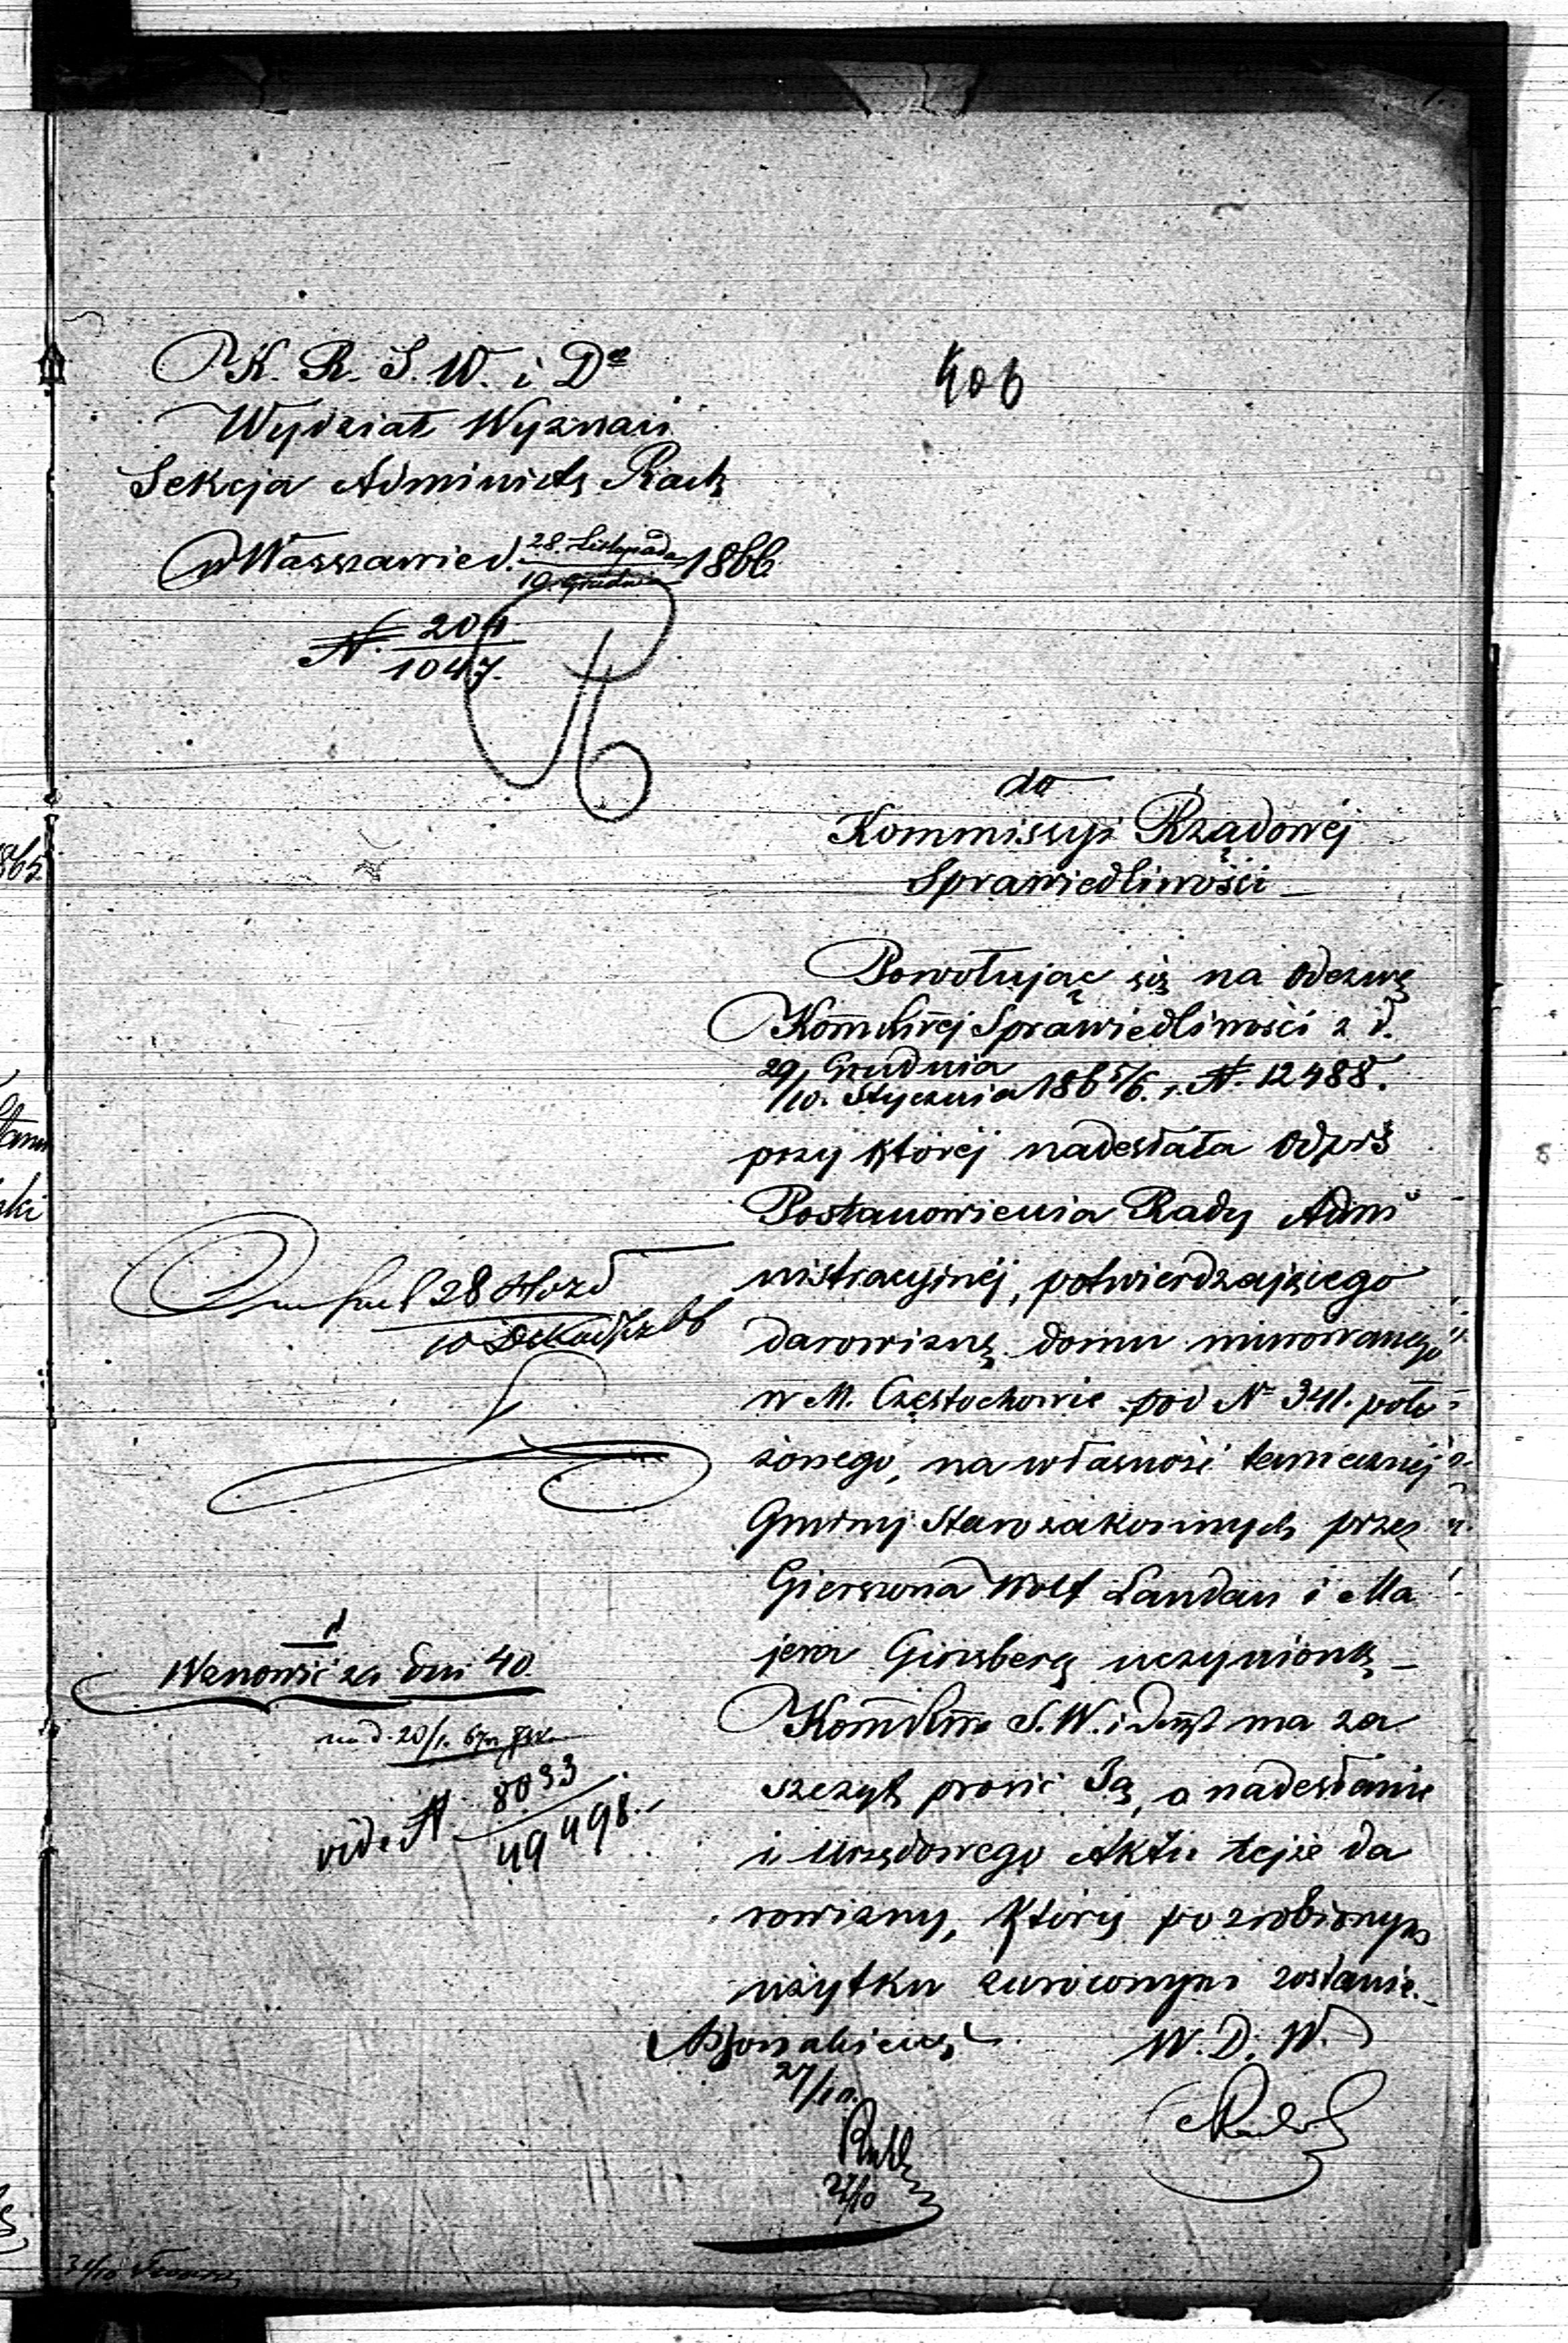 406
K. R. S. W. i D
Wydział Wyznań
Sekcja Administr Rach
w Warszawie d. 28. Listopada / 10 Grudnia 1866
N. 204 / 1047.
do
Kommissyi Rządowéj
Sprawiedliwości
Powołując się na Odezwę
Sprawiedliwości z d.
29/10. Grudnia / Stycznia 1865/6. r. N. 12488.
przy któréj nadesłała Odpis
Postanowienia Rady Admi
nistracyjnéj, potwierdzającego
darowiznę domu murowanego
w M. Częstochowie pod Nr 341. poło
żonego, na własność tamecznéj
Gminy Starozakonnych przez
Gierszona Wolf Landau i Ma
jera Ginsberg uczynioną
S. W. i ma za
szczyt prosić Ją, o nadesłanie
i Urzędowego Aktu tejże da
rowizny, który po zrobionym
użytku zwróconym zostanie.
W. D. W.
27/10.
27/10
28
10
Wznowić za dni 40
vide N. 8033 / 49498.